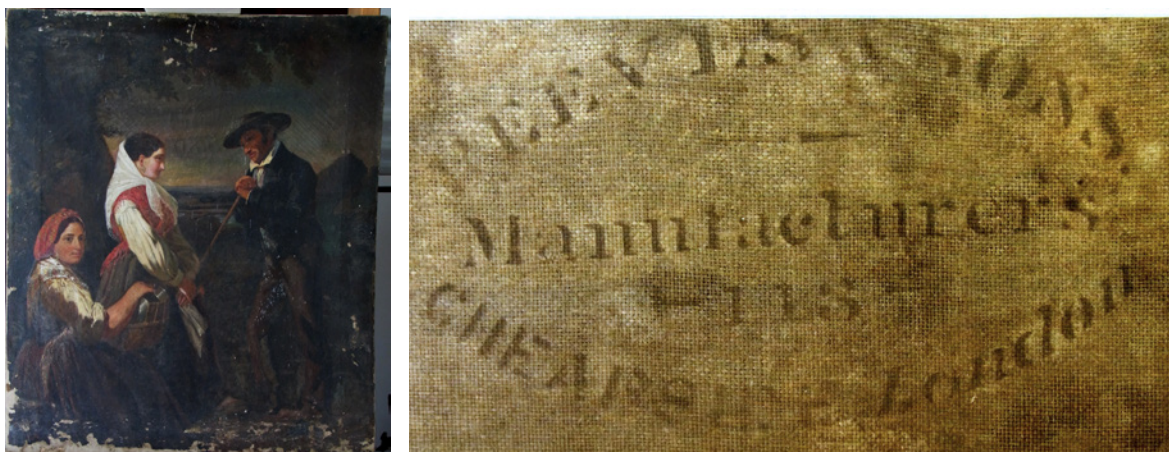 REEVES & SONS
Manufacturers
113
CHEAPSIDE London